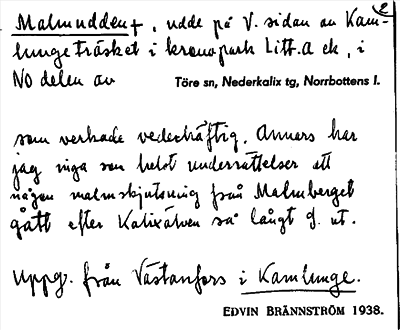 2
Malmudden +, udde på V. sidan av Kam-
lungeträsket i kronopark Litt. A ek, i
NO delen av Töre sn, Nederkalix tg, Norrbottens l.
som verkade vederhäftig. Annars har
jag inga som helst underrättelser att
någon malmskjutsning från Malmberget
gått efter Kalixälven så långt s. ut.
Uppg. från Västanfors i Kamlunge.
EDVIN BRÄNNSTRÖM 1938.